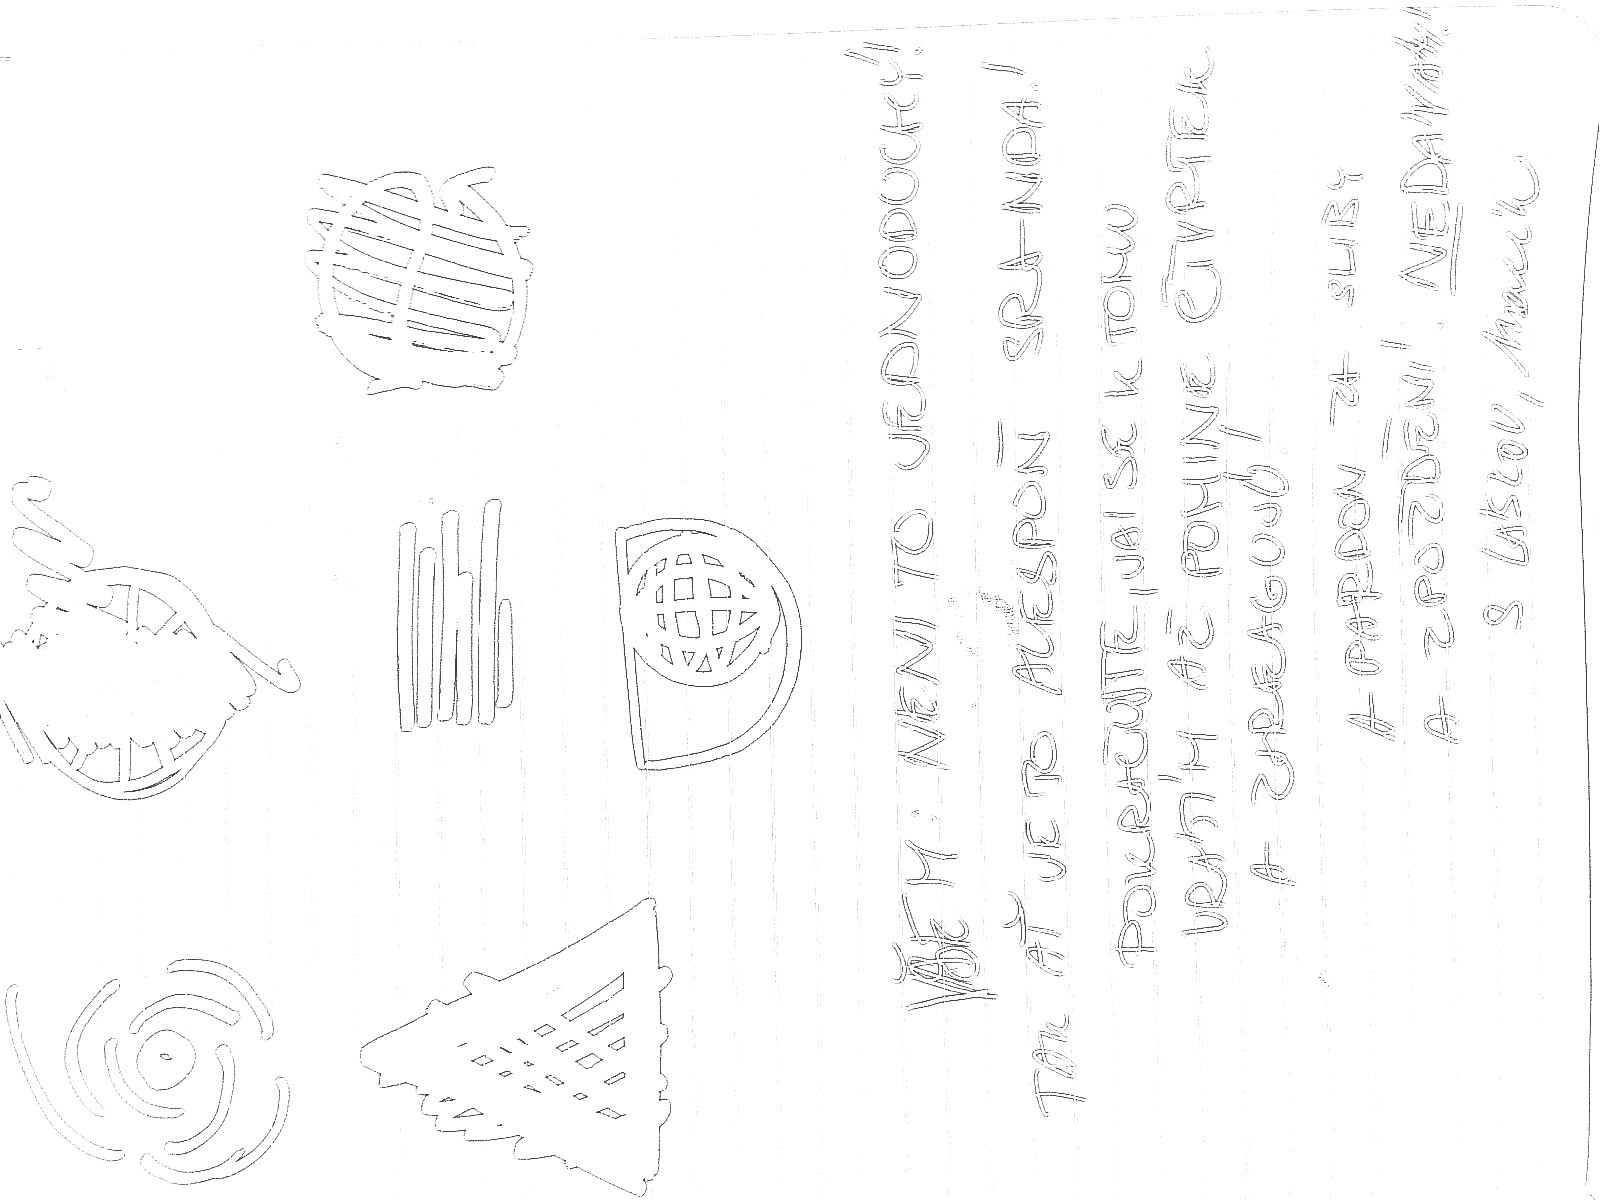 M: NENÍ TO JEDNODUCHÝ!
TAK AŤ JE TO ALESPOŇ SRANDA!
POKRAČUJTE, JÁ SE K TOMU
VRÁTÍM AŽ POMINE ČTVRTEK
A ZAREAGUJU!
A PARDON ZA SLIBY
A ZPOŽDĚNÍ!
S LÁSKOU,